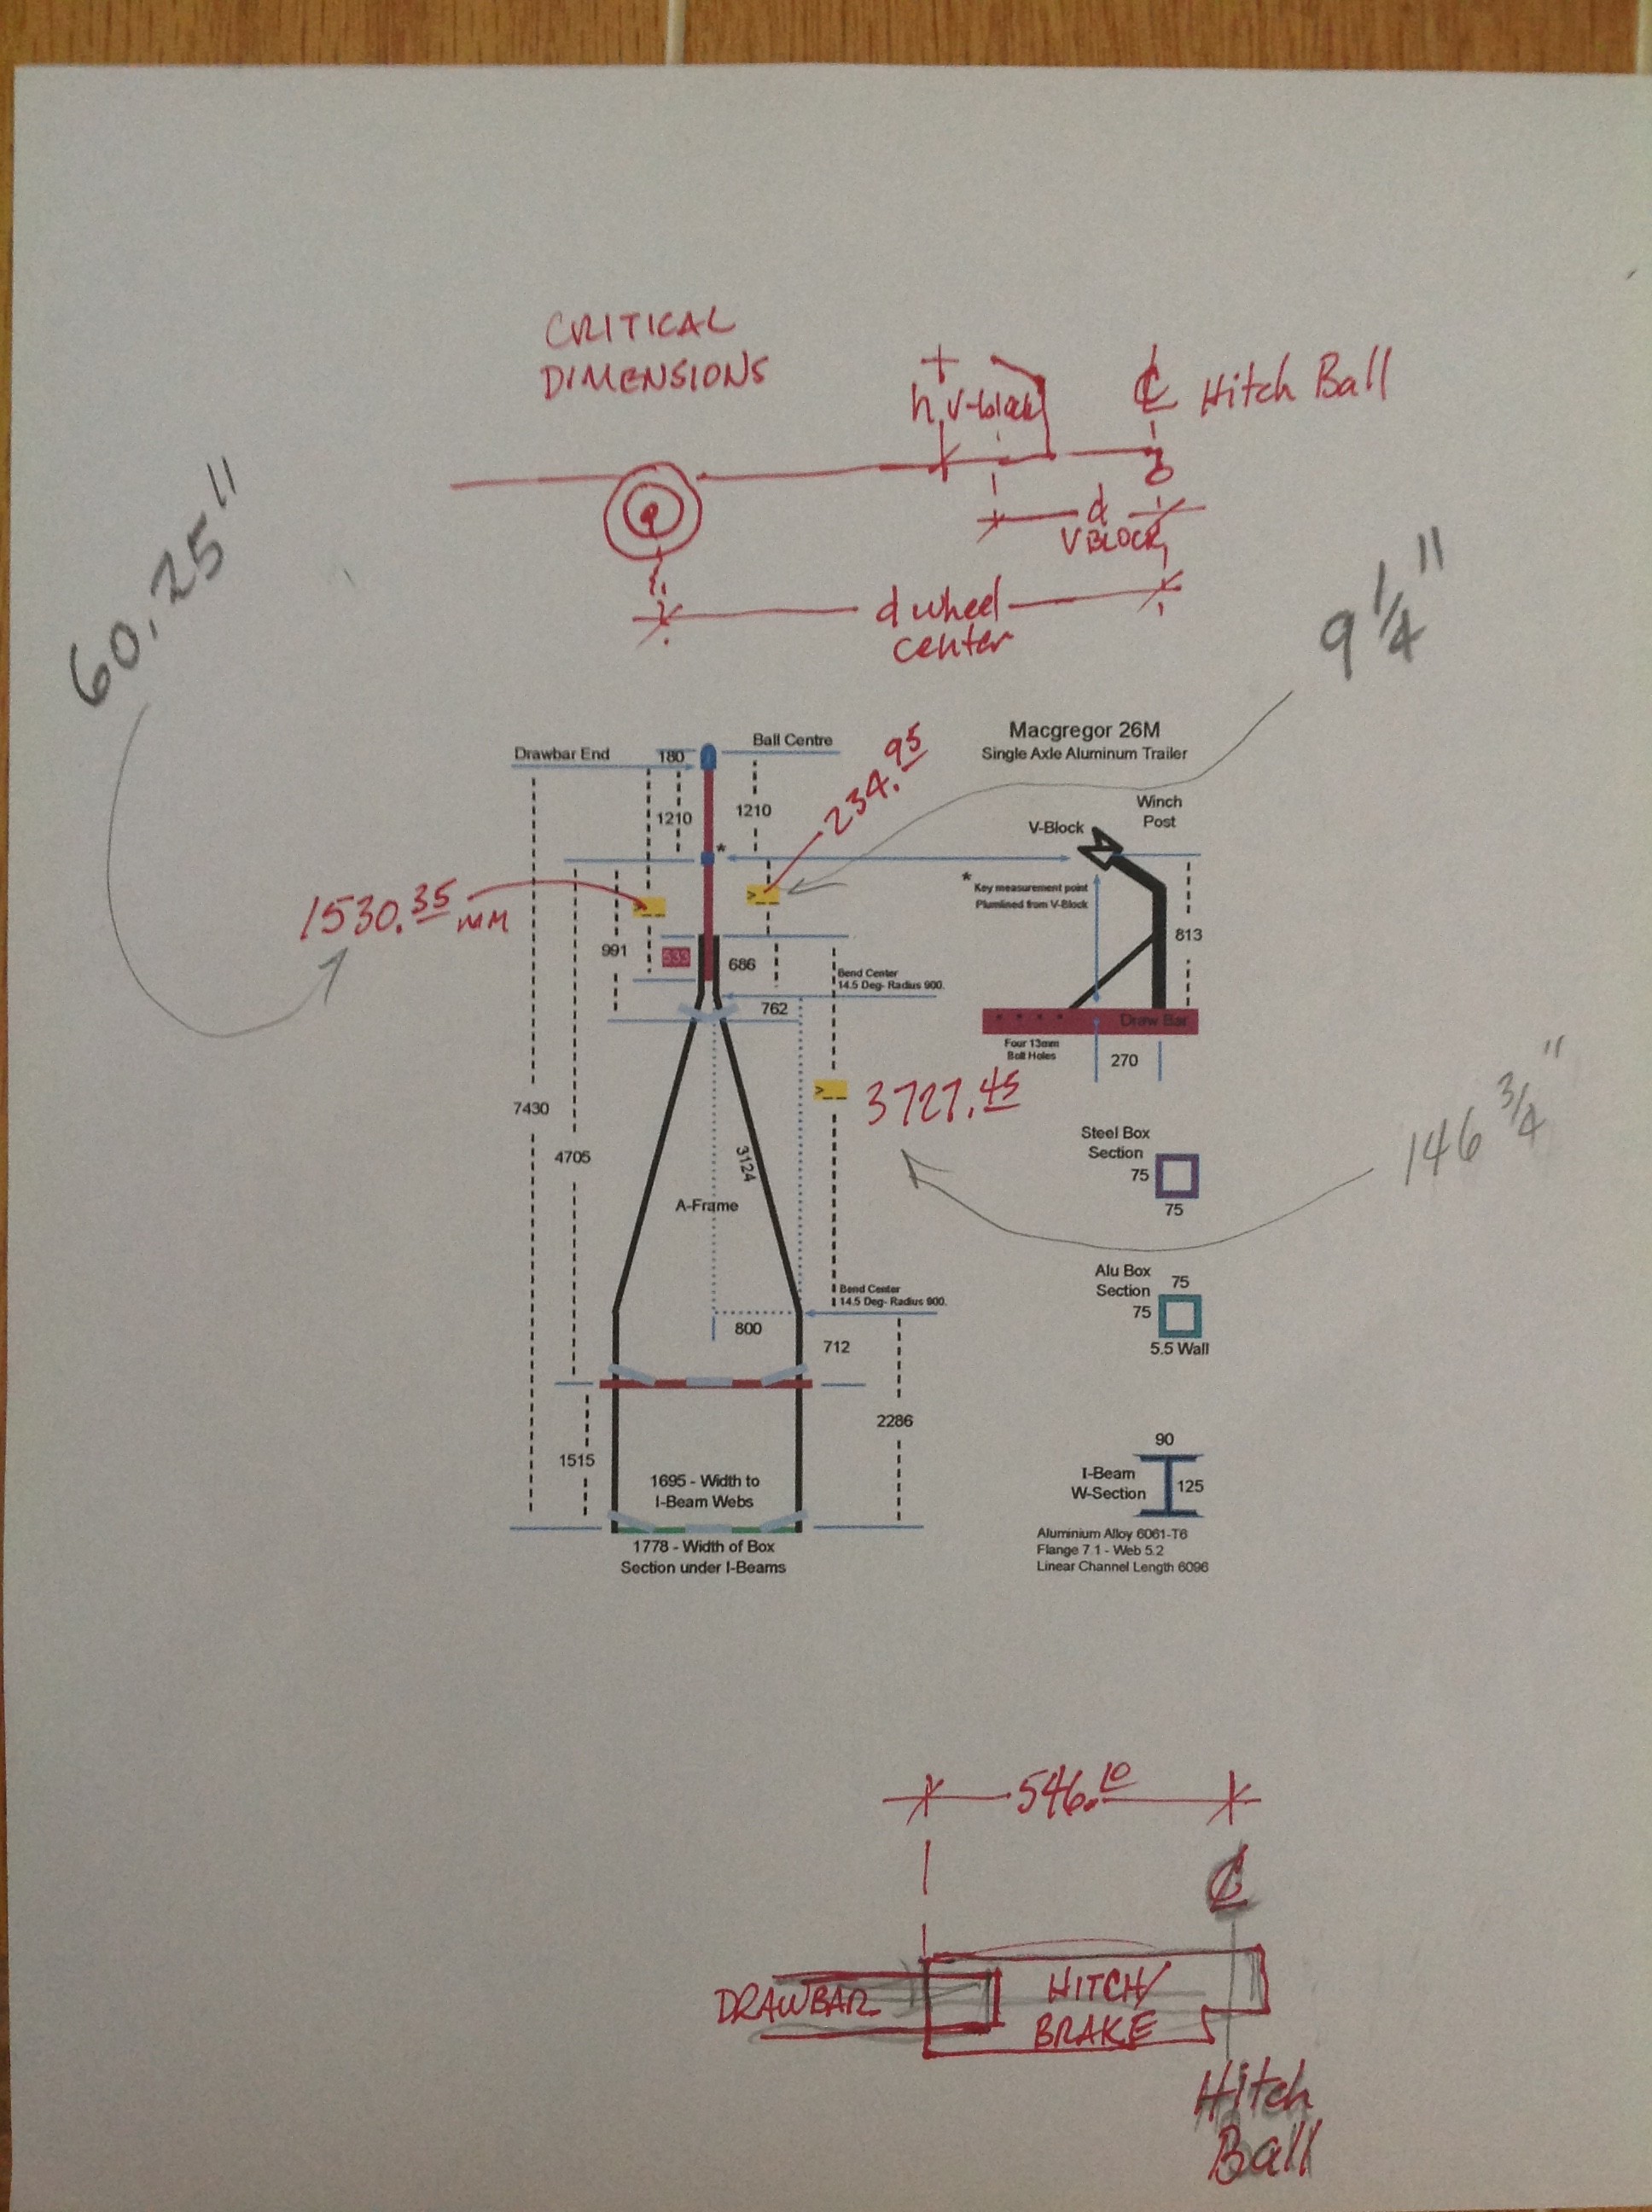 CRITICAL
DIMENSIONS
h v-block
℄ Hitch Ball
d
V BLOCK
d wheel
center
60.25"
9 1/4"
Macgregor 26M
Single Axle Aluminum Trailer
Drawbar End
180
Ball Centre
234.95
1210
1210
Winch
Post
V-Block
*
*
Key measurement point
Plumlined from V-Block
1530.35 MM
>__
>__
991
533
686
813
Bend Center
14.5 Deg- Radius 900.
762
Draw Bar
Four 13mm
Bolt Holes
270
>__
3727.45
146 3/4"
7430
4705
3124
A-Frame
Steel Box
Section
75
75
Alu Box
Section
75
75
5.5 Wall
Bend Center
14.5 Deg- Radius 900.
800
712
2286
1515
1695 - Width to
I-Beam Webs
1778 - Width of Box
Section under I-Beams
90
I-Beam
W-Section
125
Aluminium Alloy 6061-T6
Flange 7.1 - Web 5.2
Linear Channel Length 6096
546.10
℄
DRAWBAR
HITCH/
BRAKE
Hitch
Ball